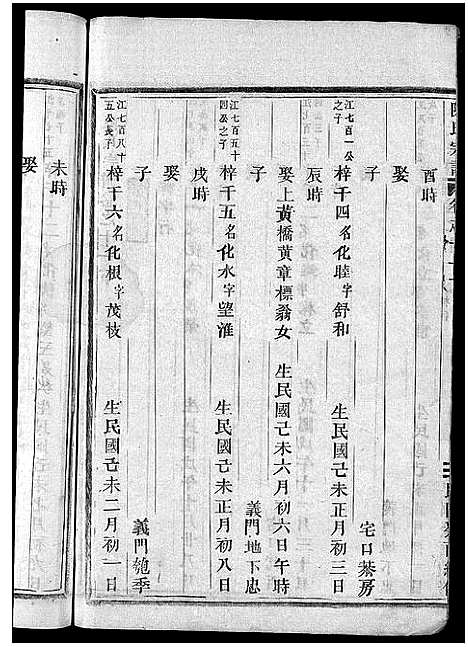 酉時
娶
子
宅口綦房
江七百一公之子 梓千四名化睦字舒和 生民國己未正月初三日
辰時
娶上黃橋黃章標翁女 生民國己未六月初六日午時
子
義門地下忠
江七百五十四公之子 梓千五名化水字望淮 生民國己未正月初八日
戌時
娶
子
義門雉季
江七百八十五公長子 梓千六名化根字茂枝 生民國己未二月初一日
未時
娶